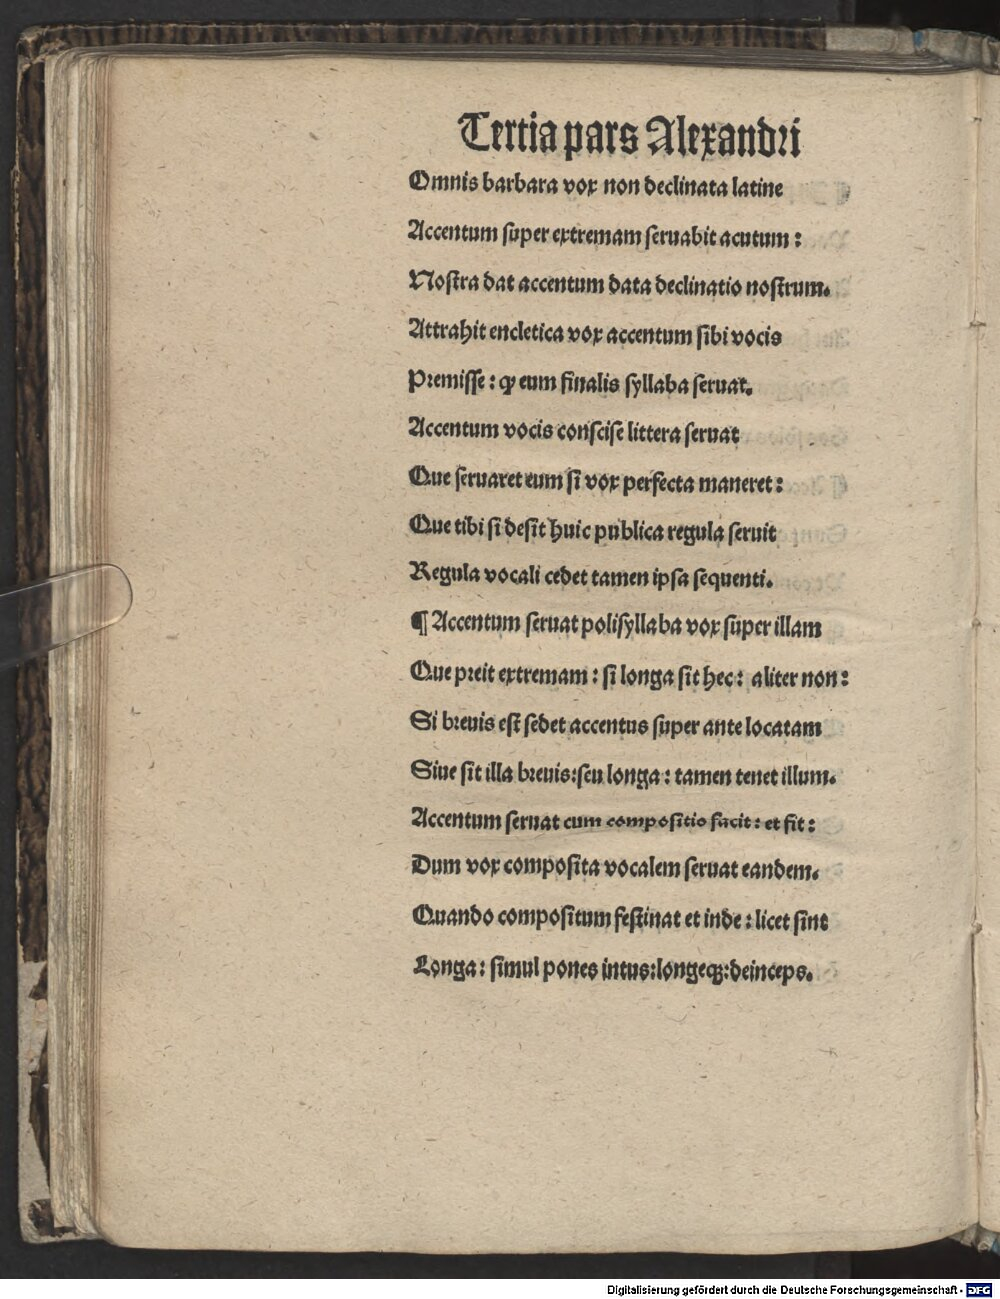 Tertia pars Alexandri
Omnis barbara vox non declinata latine
Accentum super extremam seruabit acutum :
Nostra dat accentum data declinatio nostrum.
Attrahit encletica vox accentum sibi vocis
Premisse : qꝫ eum finalis syllaba seruat.
Accentum vocis conscise littera seruat
Que seruaret eum si vox perfecta maneret :
Que tibi si desit huic publica regula seruit
Regula vocali cedet tamen ipsa sequenti.
¶ Accentum seruat polisyllaba vox super illam
Que preit extremam : si longa sit hec : aliter non :
Si breuis est sedet accentus super ante locatam
Siue sit illa breuis:seu longa : tamen tenet illum.
Accentum seruat cum compositio facit : et fit :
Dum vox composita vocalem seruat eandem.
Quando compositum festinat et inde : licet sint
Longa : simul pones intus:longeqꝫ:deinceps.
Digitalisierung gefördert durch die Deutsche Forschungsgemeinschaft - DFG